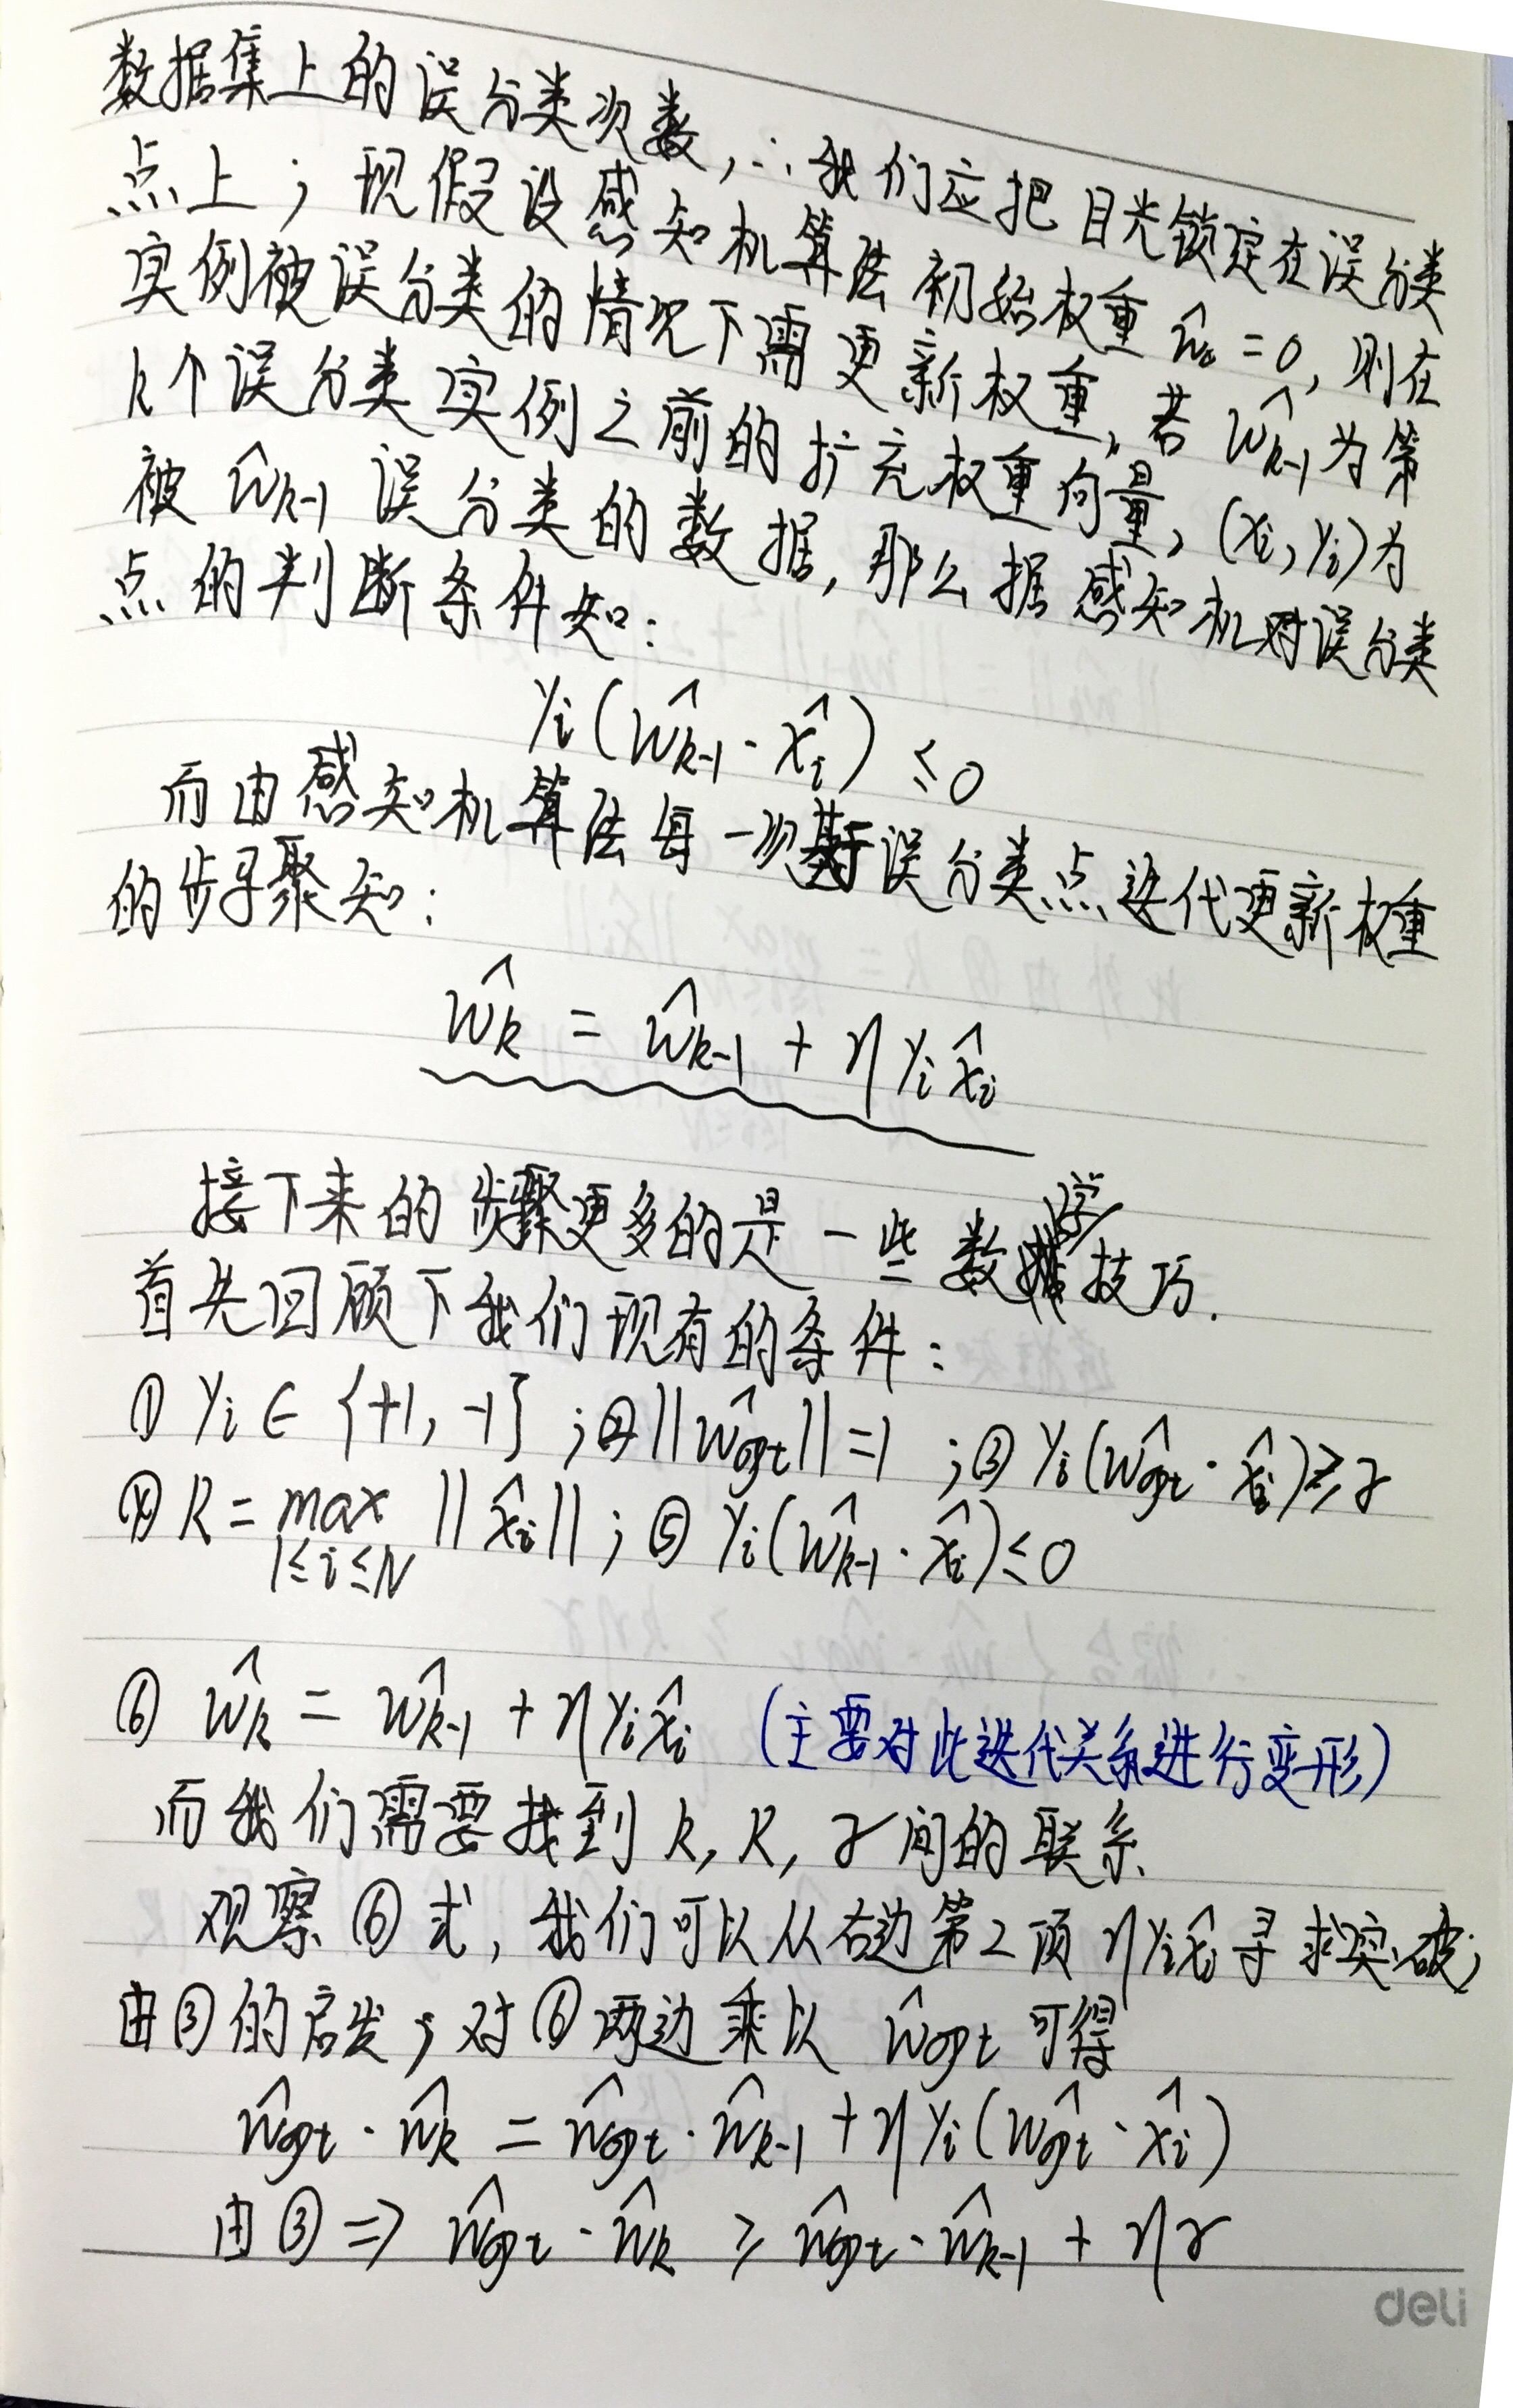 数据集上的误分类次数,∴我们应把目光锁定在误分类
点上;现假设感知机算法初始权重 ŵ₀ = 0, 则在
实例被误分类的情况下需更新权重, 若 ŵₖ₋₁ 为第
k个误分类实例之前的扩充权重向量, (xᵢ, yᵢ)为
被 ŵₖ₋₁ 误分类的数据, 那么据感知机对误分类
点的判断条件知:
yᵢ(ŵₖ₋₁ · x̂ᵢ) ≤ 0
而由感知机算法每一次基于误分类点迭代更新权重
的步骤知:
ŵₖ = ŵₖ₋₁ + ηyᵢx̂ᵢ
接下来的步骤更多的是一些数学技巧.
首先回顾下我们现有的条件:
① yᵢ ∈ {+1, -1} ;②||ŵopt||=1 ;③ yᵢ(ŵopt · x̂ᵢ)≥γ
④ R = max ||x̂ᵢ|| ; ⑤ yᵢ(ŵₖ₋₁ · x̂ᵢ)≤0
1≤i≤N
⑥ ŵₖ = ŵₖ₋₁ + ηyᵢx̂ᵢ (主要对此迭代关系进行变形)
而我们需要找到 k, R, γ间的联系.
观察⑥式, 我们可以从右边第2项 ηyᵢx̂ᵢ 寻求突破;
由③的启发,对⑥两边乘以 ŵopt 可得
ŵopt · ŵₖ = ŵopt · ŵₖ₋₁ + ηyᵢ(ŵopt · x̂ᵢ)
由③ => ŵopt · ŵₖ ≥ ŵopt · ŵₖ₋₁ + ηγ
deli